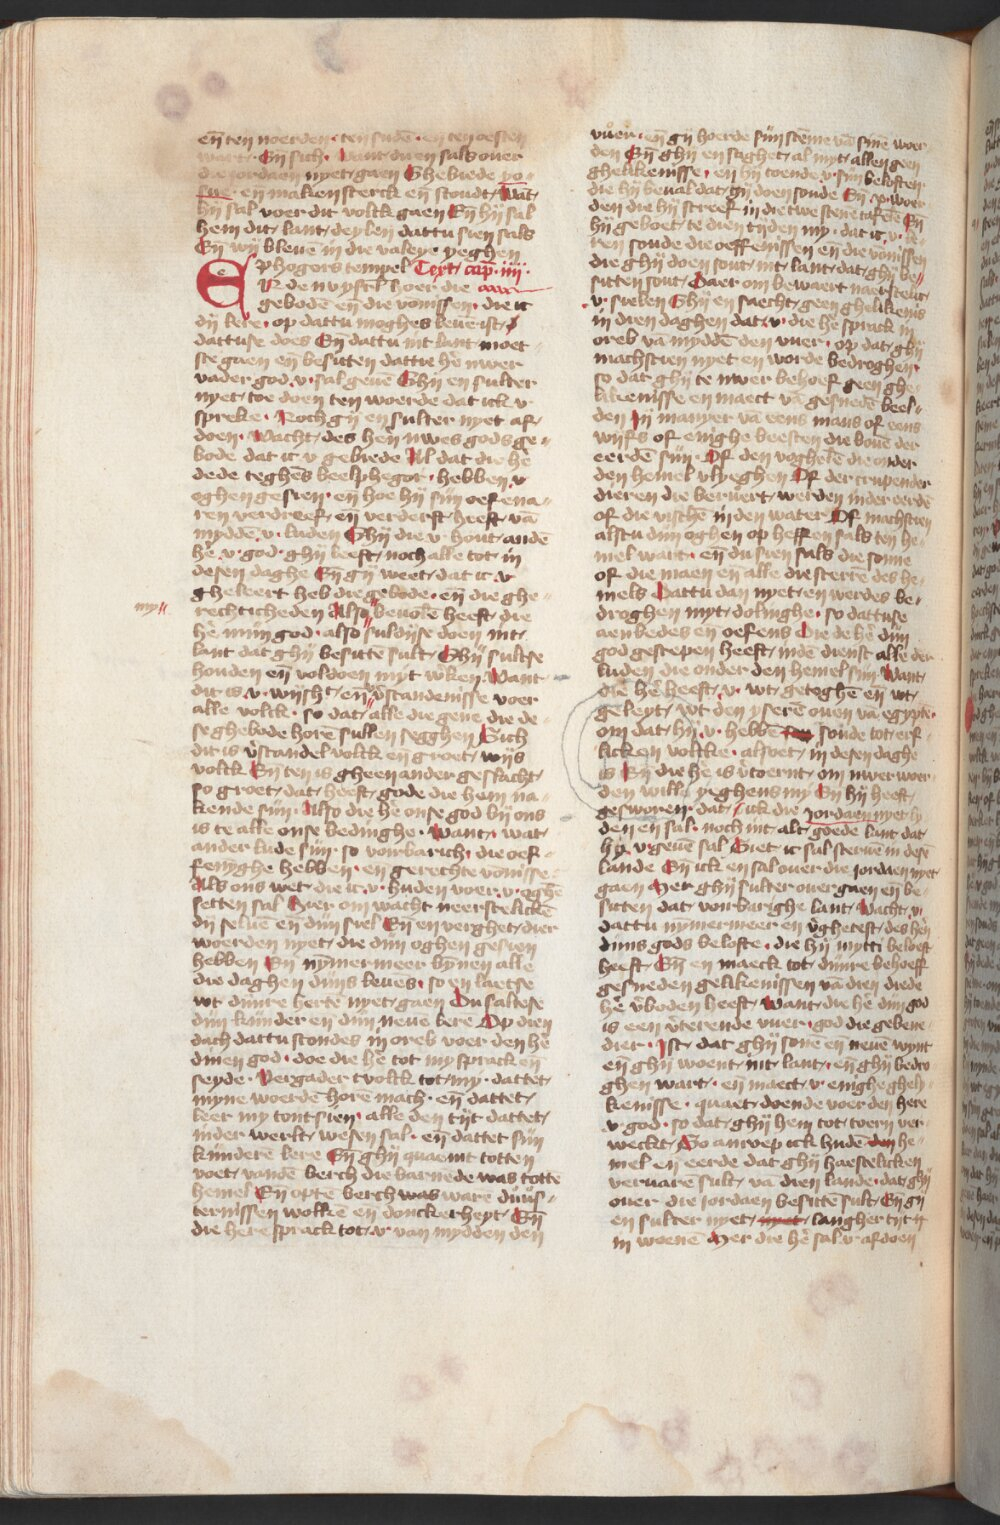 en̄ ten noerden · ten sudē · en ten oesten
wart · En̄ sich · Want du en sals ouer
die jordaen nyet gaen Ghebiede yo-
sue · en maken sterck en̄ stoudt Wāt
hij sal voer dit volck gaen En̄ hij sal
hem dit lant deylen dattu sien sals
En̄ wij bleuē in die valeye yeghen
phogors tempel Text cap̄ · iiij ·
Ende nv ysr̄l hoer die
gebodē en̄ die vonissen · die ic
dij lere · op dattu moghes leuē ist
dattuse does En̄ dattu int lant moet
ste gaen en̄ besitten dattie hē uwer
vader god v sal geuē Ghij en sulter
nyet toe doen ten woerde dat ick v
spreke · Noch gij en sulter nyet af
doen · Wacht des hen̄ uwes gods ge-
bode dat ic v gebiede Al dat die hē
dede teghēs beelphegor · hebben v
oghen gesien · en̄ hoe hij sijn oefena-
ren verdreef · en̄ verderft heeft vā
myddē v luden Ghij die v hout andē
hē v god · ghij leeft noch alle tot in
desen daghe En̄ gij weet dat ic v
gheleert heb die gebode · en̄ die ghe-
rechticheden Also beuolē heeft die
my
hē mijn god · also suldijse doen int
lant dat ghij besittē sult Ghij sultse
houden en̄ voldoen myt w̄ken Want
dit is v wijsht en̄ v̄standenisse voer
alle volck · so dat alle die gene die de-
se ghebode horē sullen segghen Sich
dit is v̄standel volck en̄ groet wijs
volck En̄ ten is gheen ander geslacht
so groet dat heeft gode die hem na-
kende sijn · Also die hē onse god bij ons
is te alle onse bedinghe · Want wat
ander lude sijn so voirbarich die oef-
fenyghe hebben · en̄ gerechte vonisse
Als ons wet die ic v huden voer v oghē
setten sal Hier om wacht neerstelickē
dij seluē en̄ dijn siel En̄ en verghet dier
woerden nyet die dijn oghen gesien
hebben En̄ nȳmermeer bynen alle
die daghen dijns leues · so en laetse
wt dijnre herte nyet gaen Du saltese
dijn kijnder en̄ dijn neuē lere Op dien
dach dattu stondes in oreb voer den hē
dinen god · doe die hē tot my sprack en̄
seyde · Vergader tvolck tot my · dattet
myne woerdē horē mach · en̄ dattet
leer my tontsien · alle den tijt dattet
inder werlt wesen sal · en̄ dattet sijn
kijnderē lere En̄ ghij quaemt totten
voet vandē berch die barnēde was totte
hemel En̄ optē berch was warē duus-
ternissen wolkē en donckerheyt En̄
die here sprack tot v van mydden den
vuer · en̄ gij hoerde sijn stēme vā sinē woer
den En̄ ghij en saghet al nyt allen geen
ghelikenisse · en hij toende v sijn beloften
die hij beual dat gij doen soude En̄ x woer
den die hij screef in die twe stene tafelē En̄
hij geboet te dien tijden my · dat ic v le-
ren soude die oeffenissen en̄ die vonissen
die ghij doen sout int lant dat ghij be-
sitten sout Daer om bewaert naerstelic
v sielen Ghij en saecht geen ghelikenis
in dien daghen dat v die hē sprack in
oreb vā myddē den vuer · op dat ghij
machscien nyet en worde bedroghen
so dat ghij te uwer behoef geen ghe
likenisse en maect vā gesnedē beel-
den In manyer vā eens mans of eens
wijfs of enighe beesten die bouē der
eerdē sijn · Of den voghelē die onder
den hemel vlyeghen Of der crupender
dieren die beruert werden inder eerdē
of die vischē in den water Of machscien
alstu dijn oghen op heffen sals ten he-
mel wart · en̄ du sien sals die sonne
of die maen en̄ alle die sterrē des he-
mels Dattu dan nyet en werdes be-
droghen myt dolinghe · so dattuse
aenbedes en̄ oefens Die de hē dijn
god gescepen heeft · indē dienst allē der
luden die onder den hemel sijn Want
die hē heeft v wt getoghē en̄ wt
geleyt wt den yserē ouen vā egypte
om dat hij v hebbē soude tot erf-
lickē volcke · alsoet in desen daghe
is En̄ die hē is v̄toernt om uwer woer-
den wille yeghens my En̄ hij heeft
gesworen · dat ick die jordaen nyet ly
den en sal · noch int alt goede lant dat
hij v geuē sal Siet ic sal steruē in desē
lande En̄ ick en sal ouer die jordaen nyet
gaen Mer ghij sulter ouergaen en̄ be-
sitten dat voirbarighe lant Wacht v
dattu nymermeer en v̄ghetest des hē
dijns gods belofte · die hij mytti beloeft
heeft En̄ en maeck tot dijnre behoeff
gesneden gelikenissen vā dien diede
hē v̄boden heeft Want die hē dijn god
is een v̄terende vuer · god die gebene
dier · Ist dat ghij sonē en̄ neuē wynt
en̄ ghij woent int lant · en̄ ghij bedro
ghen wart · en̄ maect v enighe ghely-
kenisse · quaet doende voer den here
v god · so dat ghij hem tot toern ver-
weckt So anroep ick hudē he-
mel en̄ eerde dat ghij haestelicken
veruarē sult vā dien lande dat ghij
ouer die jordaen besittē sult En̄ gij
en sulter nyet langher tijt
in woenē Mer die hē sal v afdoen